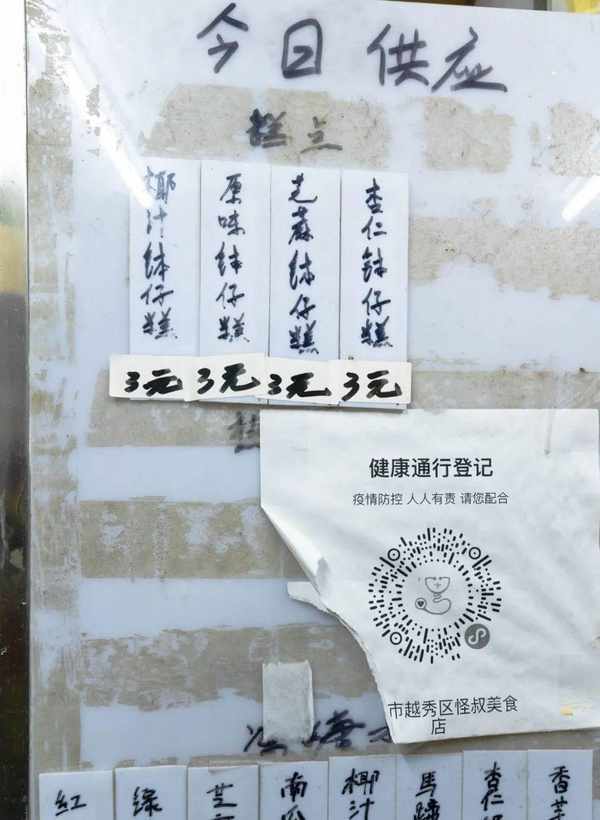 今日供应
糕点
椰汁钵仔糕
原味钵仔糕
芝麻钵仔糕
杏仁钵仔糕
3元
3元
3元
3元
健康通行登记
疫情防控 人人有责 请您配合
市越秀区怪叔美食
店
紅
绿
芝
南瓜
椰汁
馬蹄
杏仁
香芋